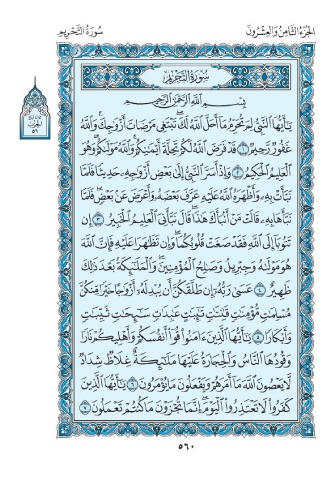 الجزء الثامن والعشرون
سورة التحريم
سُورَةُ التَّحْرِيمِ
بِسْمِ اللَّهِ الرَّحْمَٰنِ الرَّحِيمِ
يَٰٓأَيُّهَا ٱلنَّبِىُّ لِمَ تُحَرِّمُ مَآ أَحَلَّ ٱللَّهُ لَكَ ۖ تَبْتَغِى مَرْضَاتَ أَزْوَٰجِكَ ۚ وَٱللَّهُ
غَفُورٌ رَّحِيمٌ ١ قَدْ فَرَضَ ٱللَّهُ لَكُمْ تَحِلَّةَ أَيْمَٰنِكُمْ ۚ وَٱللَّهُ مَوْلَىٰكُمْ ۖ وَهُوَ
ٱلْعَلِيمُ ٱلْحَكِيمُ ٢ وَإِذْ أَسَرَّ ٱلنَّبِىُّ إِلَىٰ بَعْضِ أَزْوَٰجِهِۦ حَدِيثًا فَلَمَّا
نَبَّأَتْ بِهِۦ وَأَظْهَرَهُ ٱللَّهُ عَلَيْهِ عَرَّفَ بَعْضَهُۥ وَأَعْرَضَ عَنۢ بَعْضٍ ۖ فَلَمَّا
نَبَّأَهَا بِهِۦ قَالَتْ مَنْ أَنۢبَأَكَ هَٰذَا ۖ قَالَ نَبَّأَنِىَ ٱلْعَلِيمُ ٱلْخَبِيرُ ٣ إِن
تَتُوبَآ إِلَى ٱللَّهِ فَقَدْ صَغَتْ قُلُوبُكُمَا ۖ وَإِن تَظَٰهَرَا عَلَيْهِ فَإِنَّ ٱللَّهَ
هُوَ مَوْلَىٰهُ وَجِبْرِيلُ وَصَٰلِحُ ٱلْمُؤْمِنِينَ ۖ وَٱلْمَلَٰٓئِكَةُ بَعْدَ ذَٰلِكَ
ظَهِيرٌ ٤ عَسَىٰ رَبُّهُۥٓ إِن طَلَّقَكُنَّ أَن يُبْدِلَهُۥٓ أَزْوَٰجًا خَيْرًا مِّنكُنَّ
مُسْلِمَٰتٍ مُّؤْمِنَٰتٍ قَٰنِتَٰتٍ تَٰٓئِبَٰتٍ عَٰبِدَٰتٍ سَٰٓئِحَٰتٍ ثَيِّبَٰتٍ
وَأَبْكَارًا ٥ يَٰٓأَيُّهَا ٱلَّذِينَ ءَامَنُوا۟ قُوٓا۟ أَنفُسَكُمْ وَأَهْلِيكُمْ نَارًا
وَقُودُهَا ٱلنَّاسُ وَٱلْحِجَارَةُ عَلَيْهَا مَلَٰٓئِكَةٌ غِلَاظٌ شِدَادٌ
لَّا يَعْصُونَ ٱللَّهَ مَآ أَمَرَهُمْ وَيَفْعَلُونَ مَا يُؤْمَرُونَ ٦ يَٰٓأَيُّهَا ٱلَّذِينَ
كَفَرُوا۟ لَا تَعْتَذِرُوا۟ ٱلْيَوْمَ ۖ إِنَّمَا تُجْزَوْنَ مَا كُنتُمْ تَعْمَلُونَ ٧
الحزب
٥٦
٥٦٠